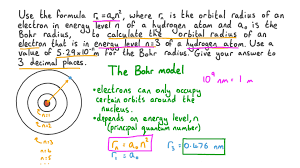 Use the formula rₙ=a₀n², where rₙ is the orbital radius of an
electron in energy level n of a hydrogen atom and a₀ is the
Bohr radius, to calculate the orbital radius of an
electron that is in energy level n=3 of a hydrogen atom. Use a
value of 5.29×10⁻¹¹ m for the Bohr radius. Give your answer to
3 decimal places.
The Bohr model
10⁹ nm = 1 m
• electrons can only occupy
certain orbits around the
nucleus.
• depends on energy level, n
(principal quantum number)
rₙ = a₀ n²
r₁ = a₀
r₃ = 0.476 nm
n=1
n=2
n=3
n=4
n=5